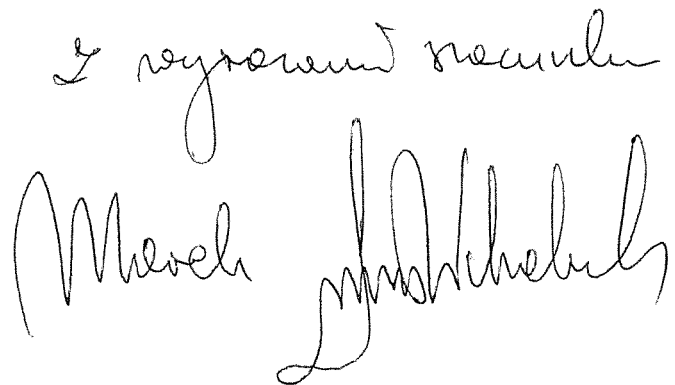 Z wyrazami szacunku
Marek